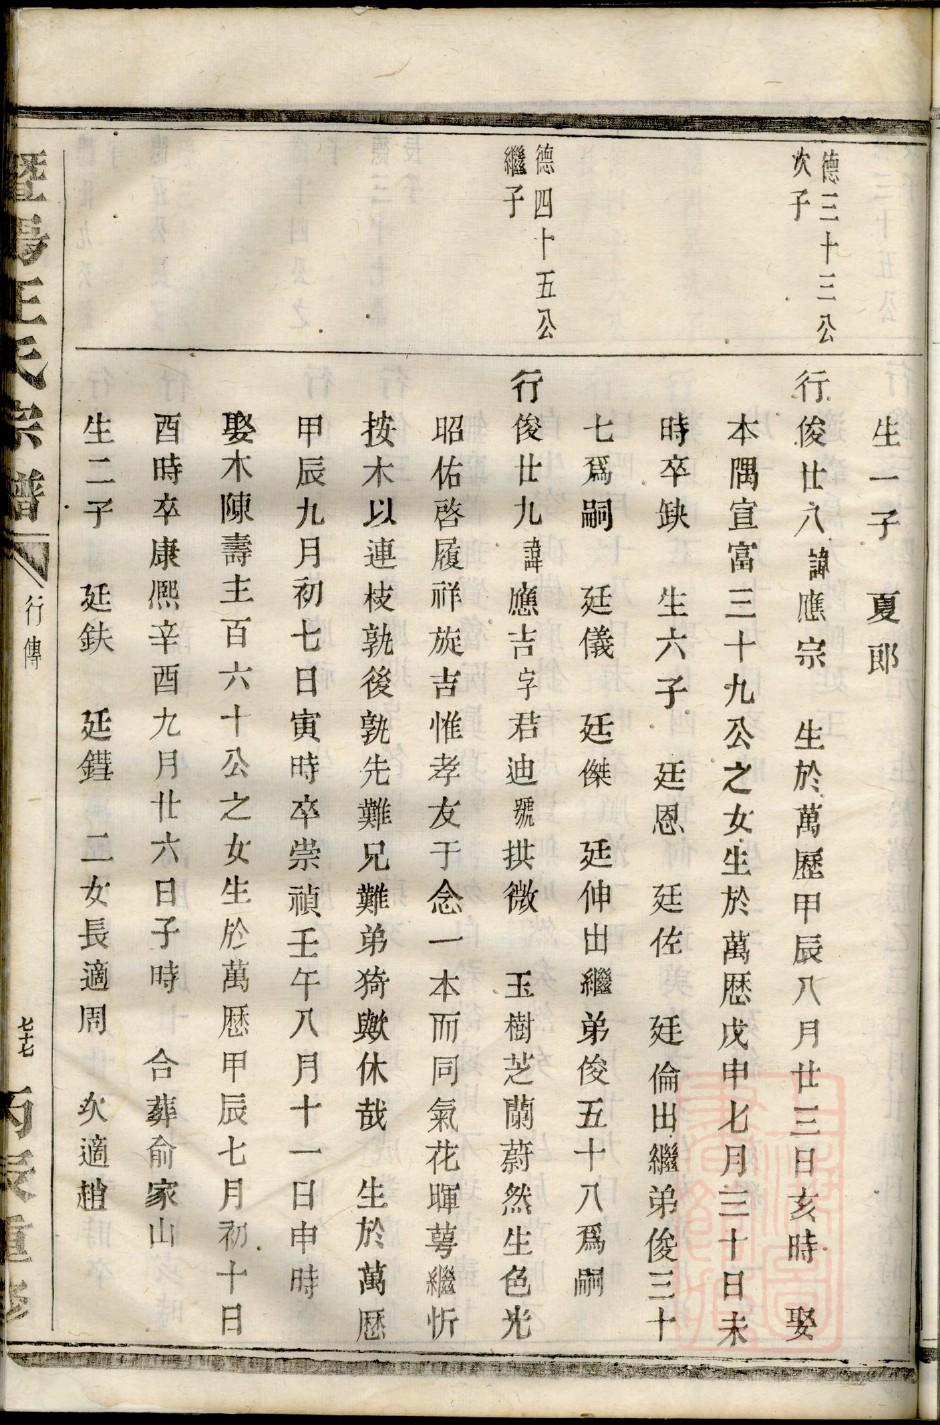 生一子　夏郎
德三十三公
次子
行俊廿八諱應宗　生於萬歷甲辰八月廿三日亥時　娶
本隅宣富三十九公之女生於萬歷戊申七月三十日未
時卒缺　生六子　廷恩　廷佐　廷倫出繼弟俊三十
七爲嗣　廷儀　廷傑　廷伸出繼弟俊五十八爲嗣
德四十五公
繼子
行俊廿九諱應吉字君迪號拱微　玉樹芝蘭蔚然生色光
昭佑啓履祥旋吉惟孝友于念一本而同氣花暉萼繼忻
按木以連枝孰後孰先難兄難弟猗歟休哉　生於萬歷
甲辰九月初七日寅時卒崇禎壬午八月十一日申時
娶木陳壽主百六十公之女生於萬歷甲辰七月初十日
酉時卒康熙辛酉九月廿六日子時　合葬俞家山
生二子　廷鈇　廷鐟　二女長適周　次適趙
暨陽王氏宗譜
行傳
七十七
丙辰重修